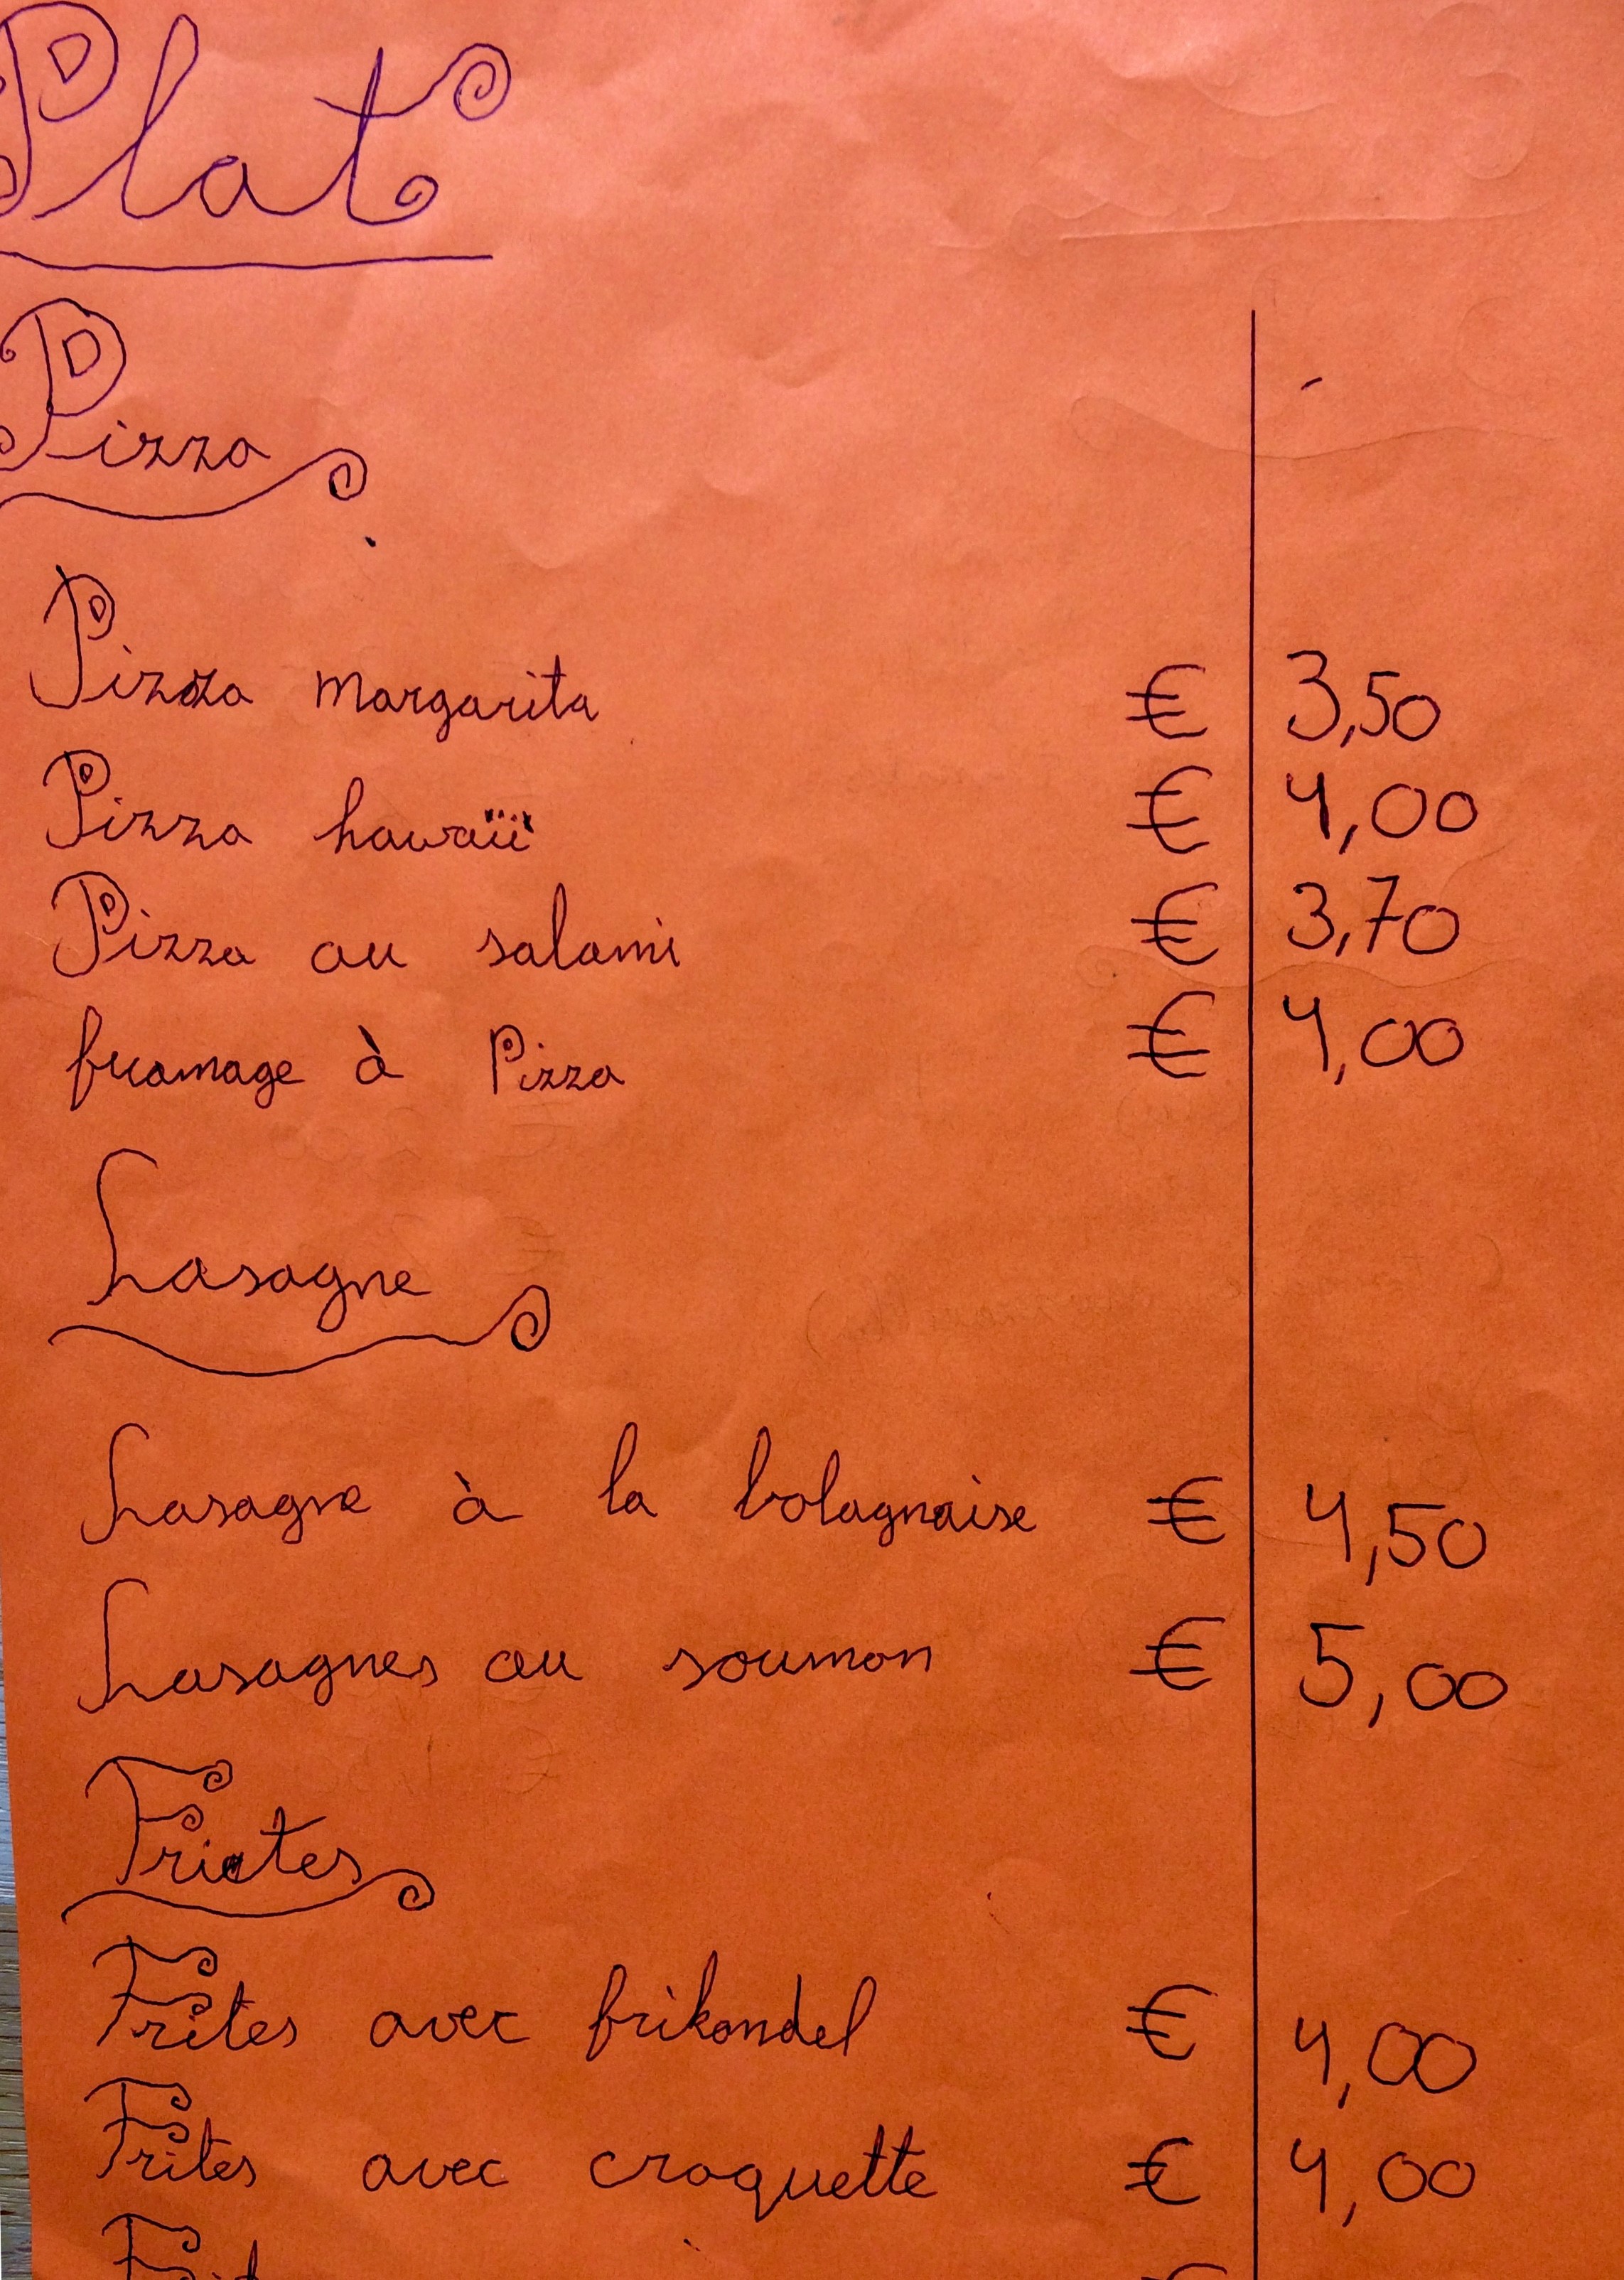 Plat
Pizza
Pizza margarita € 3,50
Pizza hawaïï € 4,00
Pizza au salami € 3,70
fromage à Pizza € 4,00
Lasagne
Lasagne à la bolagnaise € 4,50
Lasagnes au soumon € 5,00
Frietes
Frites avec frikandel € 4,00
Frites avec croquette € 4,00